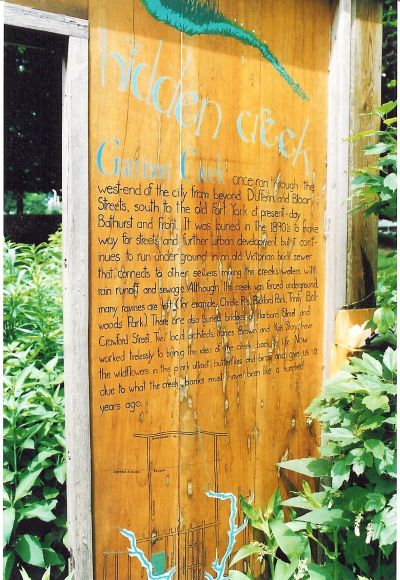 hidden creek
Garrison Creek once ran through the
west-end of the city from beyond Dufferin and Bloor
Streets, south to the old Fort York at present-day
Bathurst and Front. It was buried in the 1890s to make
way for streets and further urban development but it cont-
inues to run underground in an old Victorian brick sewer
that connects to other sewers mixing the creek's waters with
rain runoff and sewage. Although the creek was forced underground,
many ravines are left (for example, Christie Pits, Bickford Park, Trinity Bell-
woods Park). There are also buried bridges at Harbord Street and
Crawford Street. Two local architects, James Brown and Kim Storey have
worked tirelessly to bring the idea of the creek back to life. Now
the wildflowers in the park attract butterflies and birds and give us a
clue to what the creek banks must have been like a hundred
years ago.